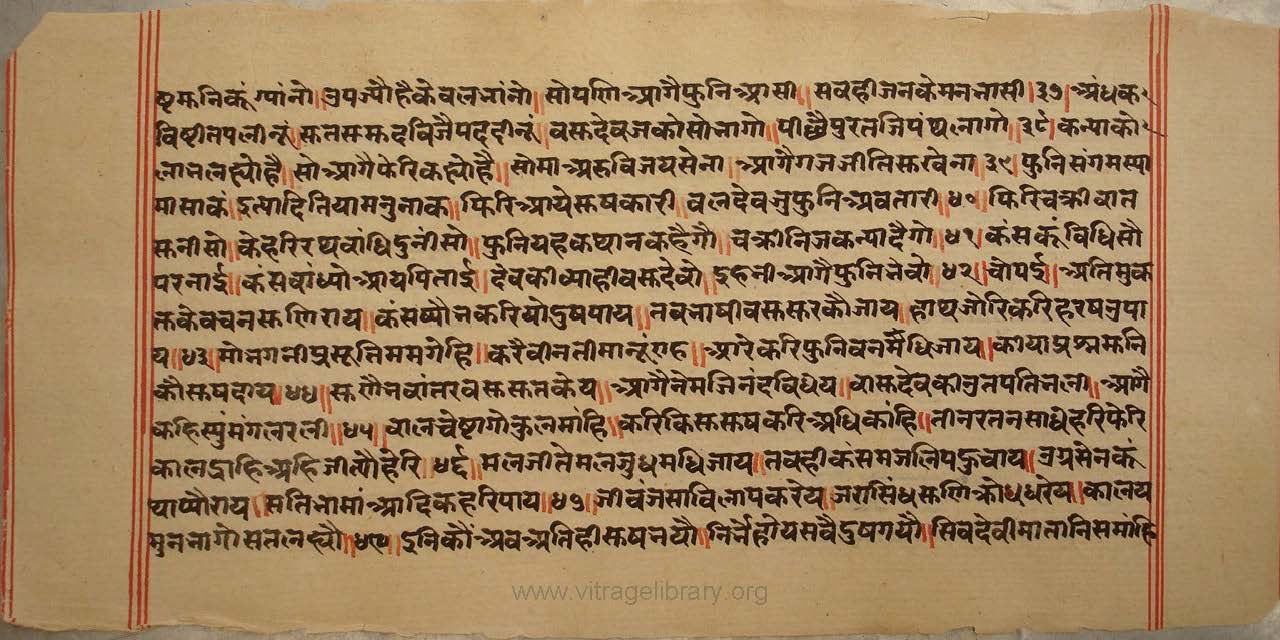 ष्टमनिकूं ग्यांनो ॥ त्रपज्यौ है केवल नांनो ॥ सो पणि आगै फुनि आसी ॥ सबही जनके मन भासी ॥ ३७ ॥ अंधक
विष्टी तप लीनूं ॥ सुत समुद विजै पद दीनूं ॥ वसुदेवज को सोभागो ॥ पीछै पुर तजि पंथ लागो ॥ ३८ ॥ कन्या को
लाभ लह्यो है ॥ सो आगै फेरि कह्यो है ॥ सोमा अरु विजयसेना ॥ आगै गज जीति सुखेना ॥ ३९ ॥ फुनि संगम स्या
मा साकं ॥ इत्यादि तिया मनु नाक ॥ फिरि आये सुषकारी ॥ बलदेव जु फुनि अवतारी ॥ ४० ॥ फिरि चक्री बात
सुनी सो ॥ केहरि रथ बांधि दुनी सो ॥ फुनि यह कथान कहैगौ ॥ चक्री निज कन्या दैगो ॥ ४१ ॥ कंसकूं विधि सौ
परनाई ॥ कंस बांध्यो आय पिताई ॥ देवकी व्याही वसुदेवो ॥ इह भी आगै फुनि भेवो ॥ ४२ ॥ चोपई ॥ अति मुक
तके वचन सुणि राय ॥ कंस ष्यौन करियो दुष पाय ॥ नब भाषी वसु सुरकौ जाय ॥ हाथ जोरि करि हरष उपा
य ॥ ४३ ॥ मो भगनी प्रसूति मम गेहि ॥ करै वीनती मानूं एह ॥ आरे करि फुनि वन मैं धि जाय ॥ कीया प्रश्न मुनि
कौ सुषदाय ॥ ४४ ॥ सुणौ भवांतर वसु सुत केय ॥ आगै नेम जिनंद विधेय ॥ वासुदेव की उतपति भली ॥ आगै
कहिस्युं मंगल रली ॥ ४५ ॥ बाल चेष्टा गोकुल मांहि ॥ करि किसु सुष करि अधिकांहि ॥ तीन रतन साधे हरि फेरि
कालद्राहि अहि जीत्यौ हेरि ॥ ४६ ॥ मल जीते मल जुध मधि जाय ॥ तबही कंस मज लिपहुचाय ॥ उग्रसेनकूं
थाप्यौ राय ॥ सतिभामां आदिक हरि पाय ॥ ४७ ॥ जीवंजसा विलाप करेय ॥ जरासिंध सुणि क्रोध धरेय ॥ कालय
मुन भागो सत लह्यौ ॥ ४८ ॥ इनिकौं अब अति ही सुष भयौ ॥ निर्भै होय सबै दुष गयौ ॥ सिव देवी माता निस मांहि
www.vitragelibrary.org